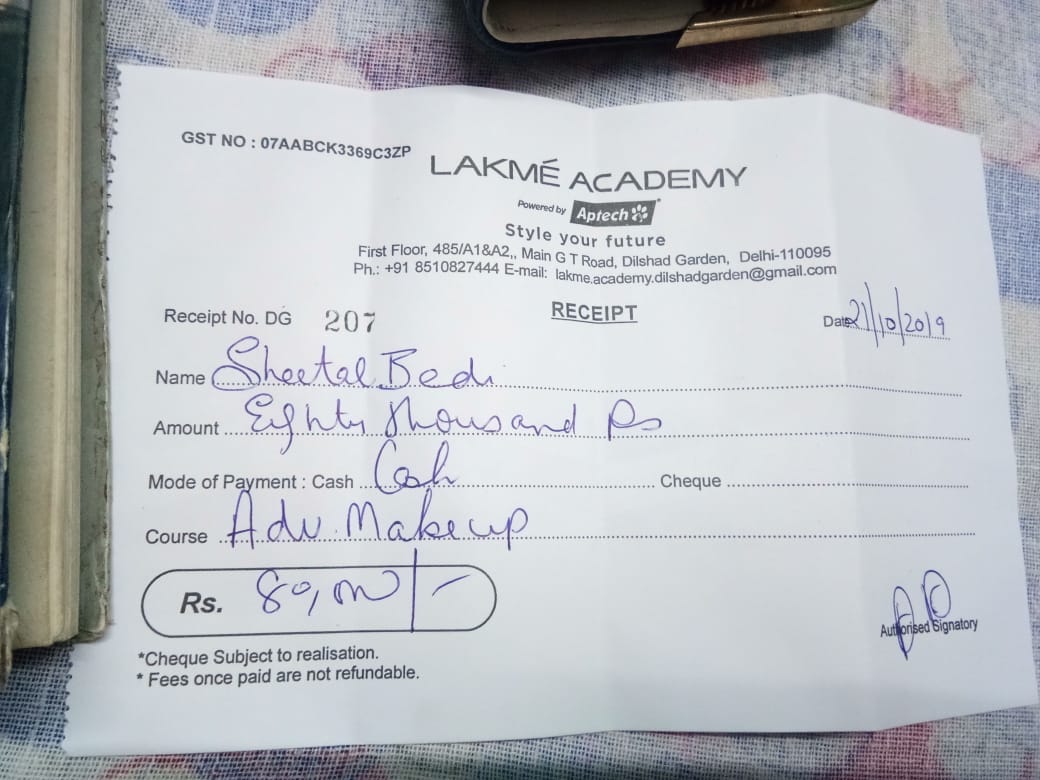 GST NO : 07AABCK3369C3ZP
LAKMÉ ACADEMY
Powered by Aptech
Style your future
First Floor, 485/A1&A2,, Main G T Road, Dilshad Garden, Delhi-110095
Ph.: +91 8510827444 E-mail: lakme.academy.dilshadgarden@gmail.com
RECEIPT
Receipt No. DG 207 Date 21/10/2019
Name Sheetal Bedi
Amount Eighty thousand Rs
Mode of Payment : Cash Cash Cheque
Course Adv Makeup
Rs. 80,000/-
Authorised Signatory
*Cheque Subject to realisation.
* Fees once paid are not refundable.